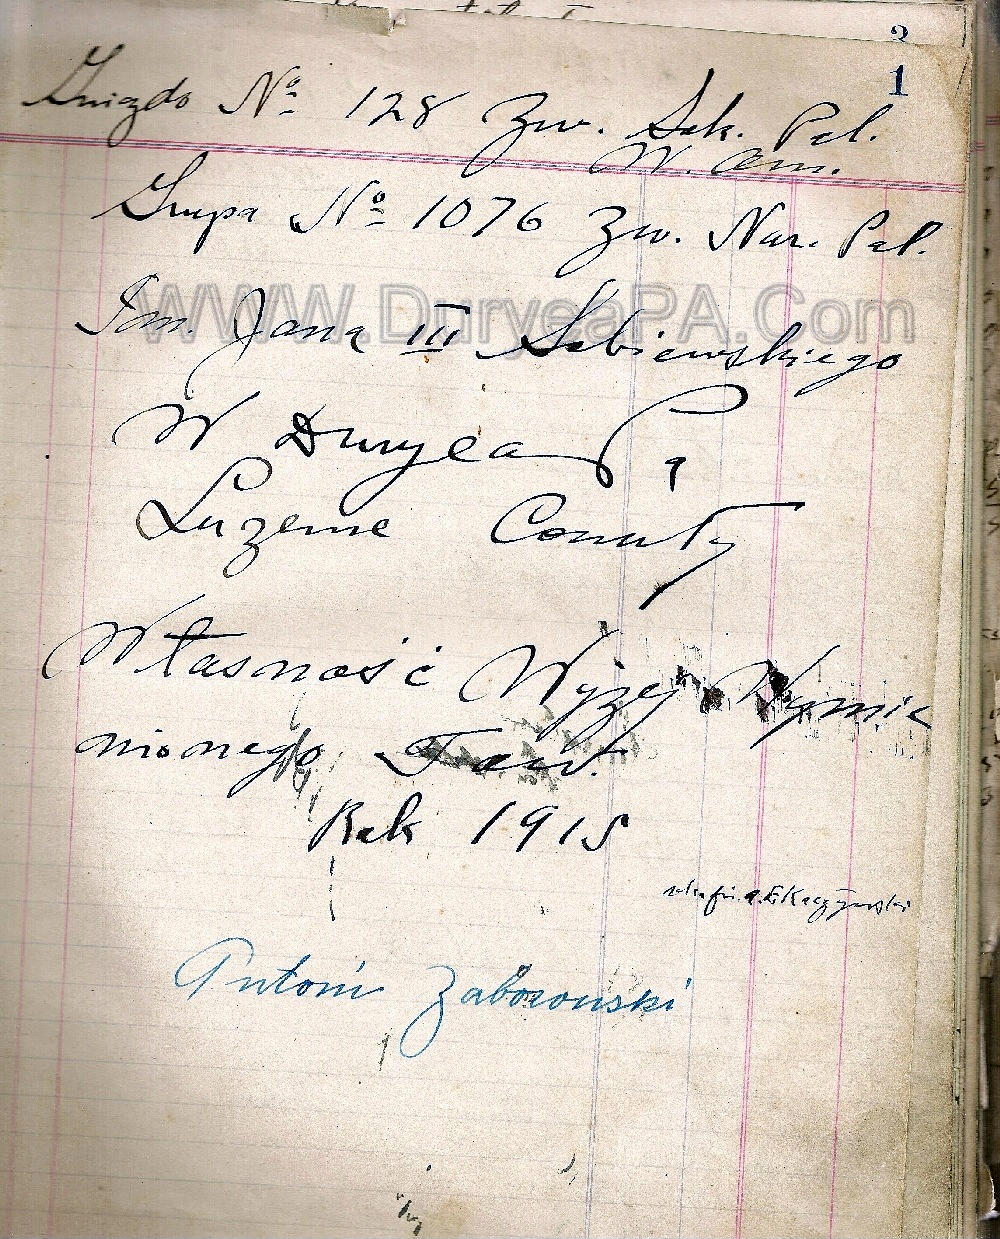 2
1
Gniazdo No 128 Zw. Sok. Pol.
W. Am.
Grupa No 1076 Zw. Nar. Pol.
Im. Jana III Sobieskiego
W Duryea Pa
Luzerne County
Własność Wyżej Wymie
nionego Tow.
Rok 1915
Antoni Zaborowski
WWW.DuryeaPA.Com